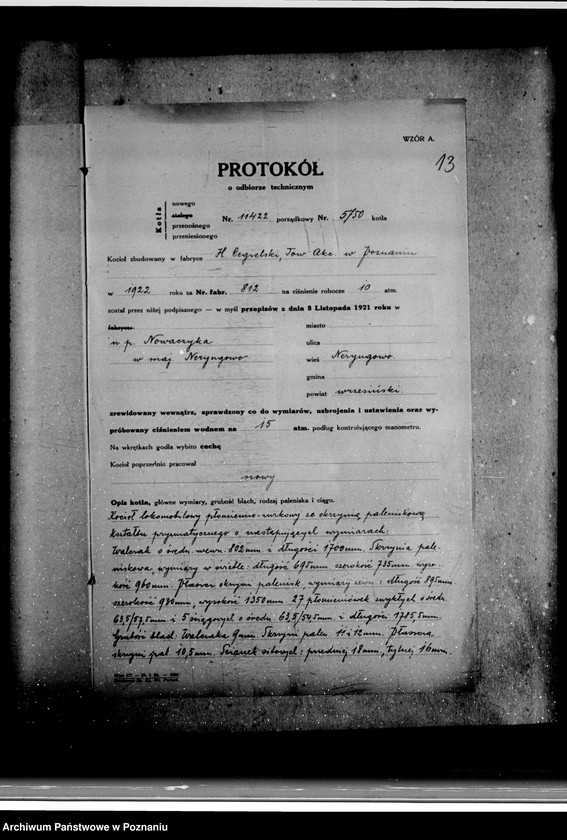 WZÓR A.
13
PROTOKÓŁ
o odbiorze technicznym
Kotła
nowego
stałego
przenośnego
przeniesionego
Nr. 11422 porządkowy Nr. 5/50 kotła
Kocioł zbudowany w fabryce H. Cegielski, Tow. Akc. w Poznaniu
w 1922 roku za Nr. fabr. 812 na ciśnienie robocze 10 atm.
został przez niżej podpisanego — w myśl przepisów z dnia 8 Listopada 1921 roku w
fabryce:
u p. Nowaczyka
w maj. Neryngowo
miasto
ulica
wieś Neryngowo
gmina
powiat wrzesiński.
zrewidowany wewnątrz, sprawdzony co do wymiarów, uzbrojenia i ustawienia oraz wy-
próbowany ciśnieniem wodnem na 15 atm. podług kontrolującego manometru.
Na wkrętkach godła wybito cechę
Kocioł poprzednio pracował
nowy
Opis kotła, główne wymiary, grubość blach, rodzaj paleniska i ciągu.
Kocioł lokomobilowy płomienno-rurkowy ze skrzynią paleniskową
kształtu pryzmatycznego o następujących wymiarach:
Walczak o średn. wewn. 802 mm. i długości 1700 mm. Skrzynia pale-
niskowa, wymiary w świetle: długość 695 mm szerokość 735 mm. wyso-
kość 960 mm. Płaszcz skrzyni palenisk. wymiary zewn.: długość 895 mm
szerokość 930 mm, wysokość 1350 mm. 27 płomieniówek zwykłych o średn.
63,5/57,5 mm. i 5 ściągowych o średn. 63,5/54,5 mm. i długości 1785,5 mm.
Grubość blach: Walczaka 9 mm. Skrzyni palen. 11 i 12 mm. Płaszcza
skrzyni pal. 10,5 mm. Ścianek sitowych: przedniej 18 mm, tylnej 16 mm.